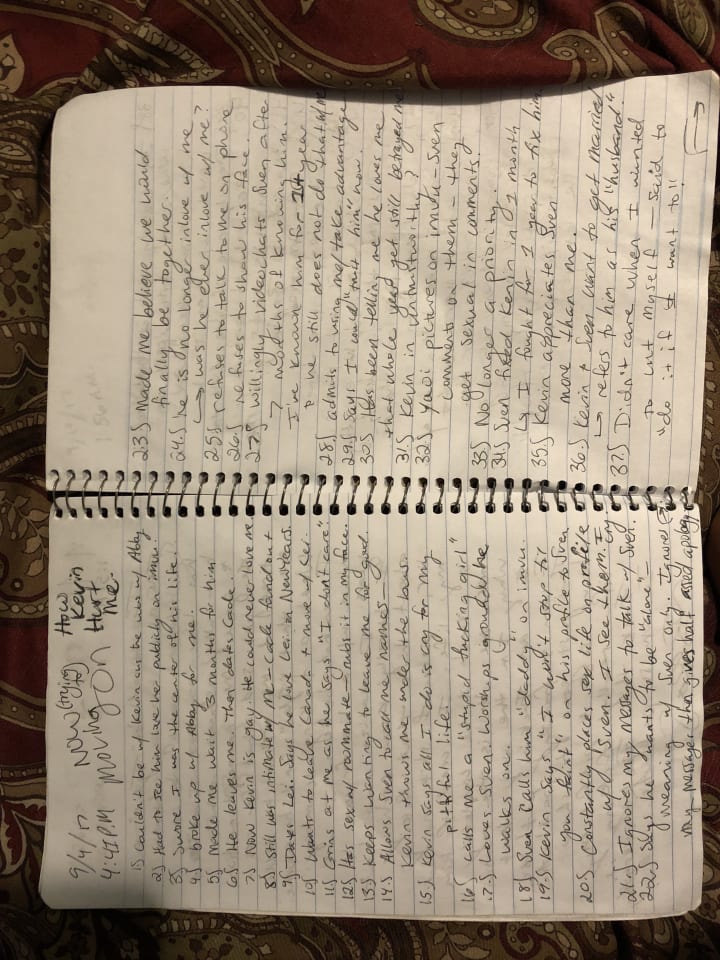 9/4/17
4:41 P.M
NOW (trying to)
moving on
How Kevin Hurt me.
1.) Couldn't be w/ Kevin cus he was w/ Abby
2.) Had to see him love her publicly on imvu.
3.) Swore I was the center of his life.
4.) broke up w/ Abby for me.
5.) Made me wait 3 months for him
6.) He leaves me. Then dates Cade.
7.) Now Kevin is gay. He could never love me
8.) Still was intimate w/ me - cade found out
9.) Dates Lei. Says he love Lei on New Years.
10.) Wants to leave Canada & move w/ Lei.
11.) Grins at me as he says "I don't care".
12.) Has sex w/ roommate - rubs it in my face.
13.) Keeps wanting to leave me for good.
14.) Allows Sven to call me names -
Kevin throws me under the bus.
15.) Kevin says all I do is cry for my
pitiful life.
16.) calls me a "Stupid fucking girl"
17.) Loves Sven. Worships ground he
walks on.
18.) Sven calls him "daddy" on imvu.
19.) Kevin says "I won't stop til
you" on his profile to Sven
20.) Constantly places sex life on profile
w/ Sven. I see them. I cry
21.) Ignores my messages to talk w/ Sven.
22.) Says he wants to be "alone" -
meaning w/ Sven only. Ignores
my messages then gives half assed apology
23.) Made me believe we would
finally be together.
24.) he is no longer inlove w/ me
↳ was he ever inlove w/ me?
25.) refuses to talk to me on phone
26.) refuses to show his face.
27.) Willingly videochats Sven after
7 months of knowing him.
I've known him for 1+ year
& he still does not do that w/ me
28.) admits to using me/take advantage
29.) Says I could "trust him" now.
30.) Has been telling me he loves me
that whole year yet still betrayed me
31.) Kevin is untrustworthy?
32.) Yaoi pictures on imvu - Sven
comments on them - they
get sexual in comments.
33.) No longer a priority.
34.) Sven fixed Kevin in 1 month
↳ I fought for 1 year to fix him
35.) Kevin appreciates Sven
more than me.
36.) Kevin & Sven want to get married
↳ refers to him as his "husband"
37.) Didn't care when I wanted
to hurt myself - Said to
"do it if I want to!!